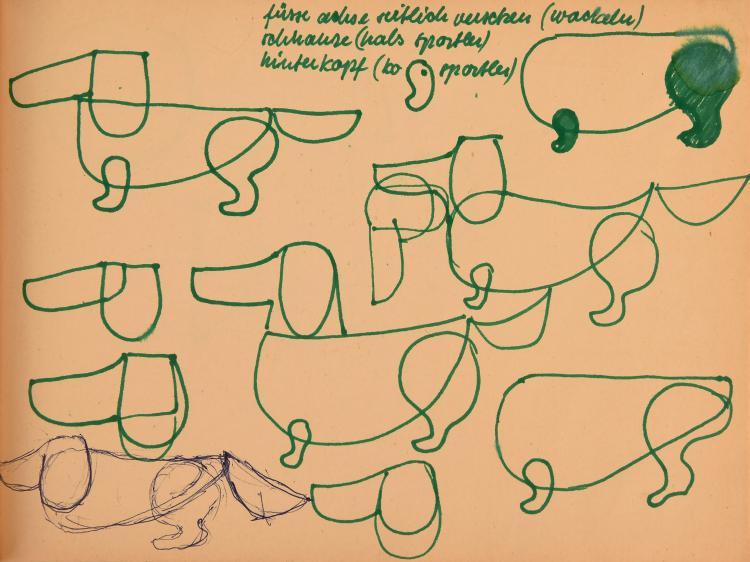 füsse achse seitlich versetzen (wackeln)
schnauze (hals sportler)
hinterkopf (ko sportler)